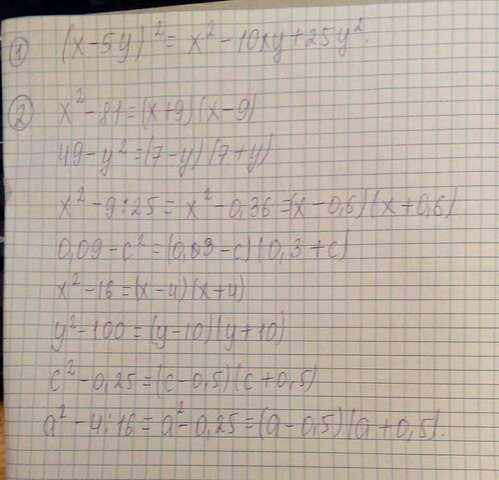 ① (x-5y)² = x² - 10xy + 25y²
② x² - 81 = (x+9)(x-9)
49 - y² = (7-y)(7+y)
x² - 9:25 = x² - 0,36 = (x-0,6)(x+0,6)
0,09 - c² = (0,03-c)(0,3+c)
x² - 16 = (x-4)(x+4)
y² - 100 = (y-10)(y+10)
c² - 0,25 = (c-0,5)(c+0,5)
a² - 4:16 = a² - 0,25 = (a-0,5)(a+0,5).